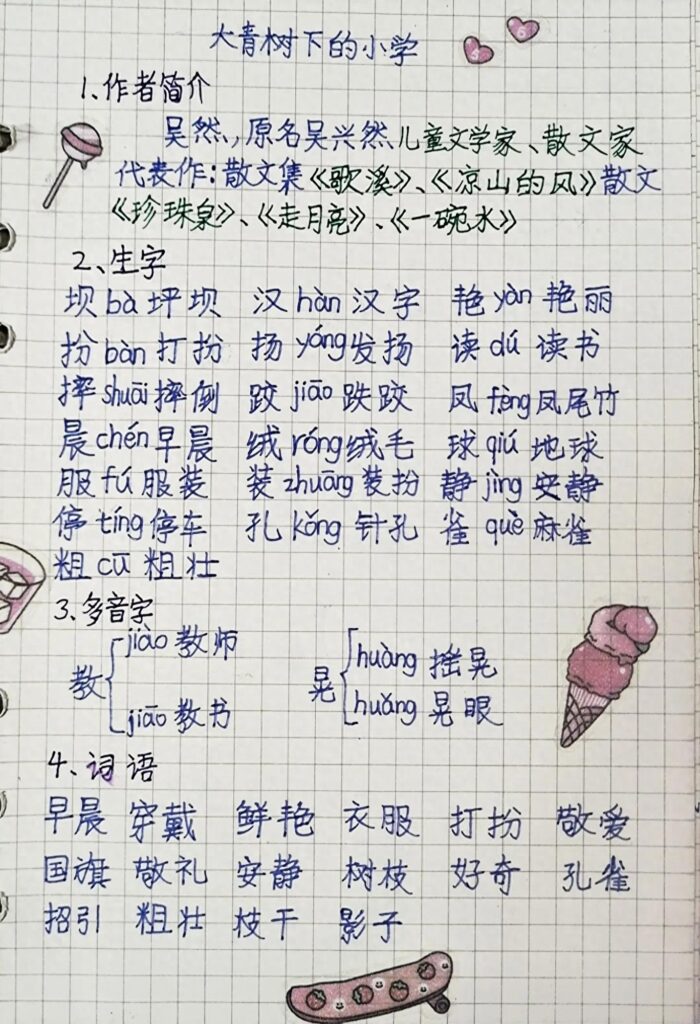 大青树下的小学
1、作者简介
吴然,,原名吴兴然儿童文学家、散文家
代表作:散文集《歌溪》、《凉山的风》散文
《珍珠泉》、《走月亮》、《一碗水》
2、生字
坝 bà 坪坝 汉 hàn 汉字 艳 yàn 艳丽
扮 bàn 打扮 扬 yáng 发扬 读 dú 读书
摔 shuāi 摔倒 跤 jiāo 跌跤 凤 fèng 凤尾竹
晨 chén 早晨 绒 róng 绒毛 球 qiú 地球
服 fú 服装 装 zhuāng 装扮 静 jìng 安静
停 tíng 停车 孔 kǒng 针孔 雀 què 麻雀
粗 cū 粗壮
3、多音字
教 jiào 教师 jiāo 教书
晃 huàng 摇晃 huǎng 晃眼
4、词语
早晨 穿戴 鲜艳 衣服 打扮 敬爱
国旗 敬礼 安静 树枝 好奇 孔雀
招引 粗壮 枝干 影子